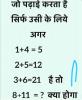 जो पढ़ाई करता है
सिर्फ उसी के लिये
अगर
1+4 = 5
2+5=12
3+6=21 है तो
8+11 = ? क्या होगा